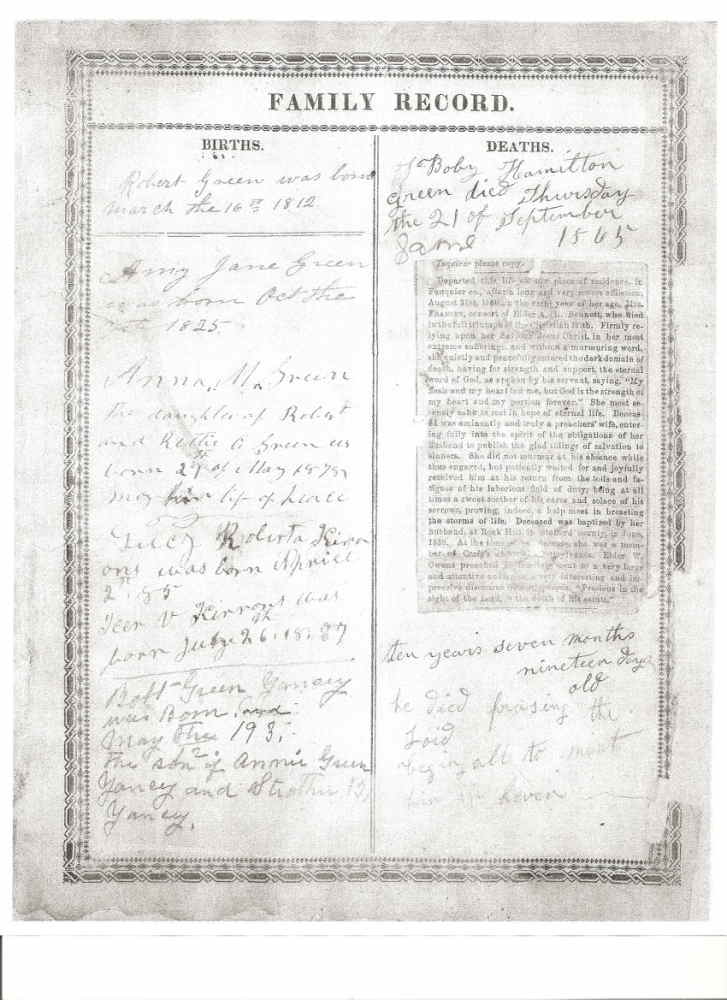 FAMILY RECORD.
BIRTHS.
Robert Green was born
March the 16th 1812
Amy Jane Green
was born Oct the
1825
Anna M. Green
the daughter of Robert
and Green
born 27th of May 1878
may life of
Lucy Roberta Kirr
ons was born Aprile
2n. 85
V Kirrons was
born July 26th. 18.87
Bob Green Yancey
was Born and
May the 193
the son of Annie Green
Yancy and Strother B,
Yancy,
DEATHS.
Boby Hamilton
green died Thursday
the 21 of September
1865
Inquirer please copy.
Departed this life at the place of residence, in
Fauquier co., after a long and very severe affliction,
August 31st, in the year of her age, Mrs.
FRANCES, consort of Elder A. H. Bennett, who died
in the full triumph of the Christian faith. Firmly re-
lying upon her Saviour Jesus Christ, in her most
extreme sufferings, and without a murmuring word,
she quietly and peacefully entered the dark domain of
death, having for strength and support, the eternal
word of God, as spoken by his servant, saying, "My
flesh and my heart fail me, but God is the strength of
my heart and my portion forever." She most se-
renely sank to rest in hope of eternal life. Deceas-
ed was eminently and truly a preachers' wife, enter-
ing fully into the spirit of the obligations of her
husband to publish the glad tidings of salvation to
sinners. She did not murmur at his absence while
thus engaged, but patiently waited for and joyfully
received him at his return from the toils and fa-
tigues of his laborious field of duty; being at all
times a sweet soother of his cares and solace of his
sorrows, proving, indeed, a help meet in breasting
the storms of life. Deceased was baptised by her
husband, at Rock Hill, in Stafford county, in June,
At the time of she was a mem-
ber of church, Elder W.
Owens preached to a very large
and attentive a very interesting and im-
pressive discourse "Precious in the
sight of the Lord, is the death of his saints."
ten years seven months
nineteen days
old
he died praising the
Lord
begin all to meet
him in heven